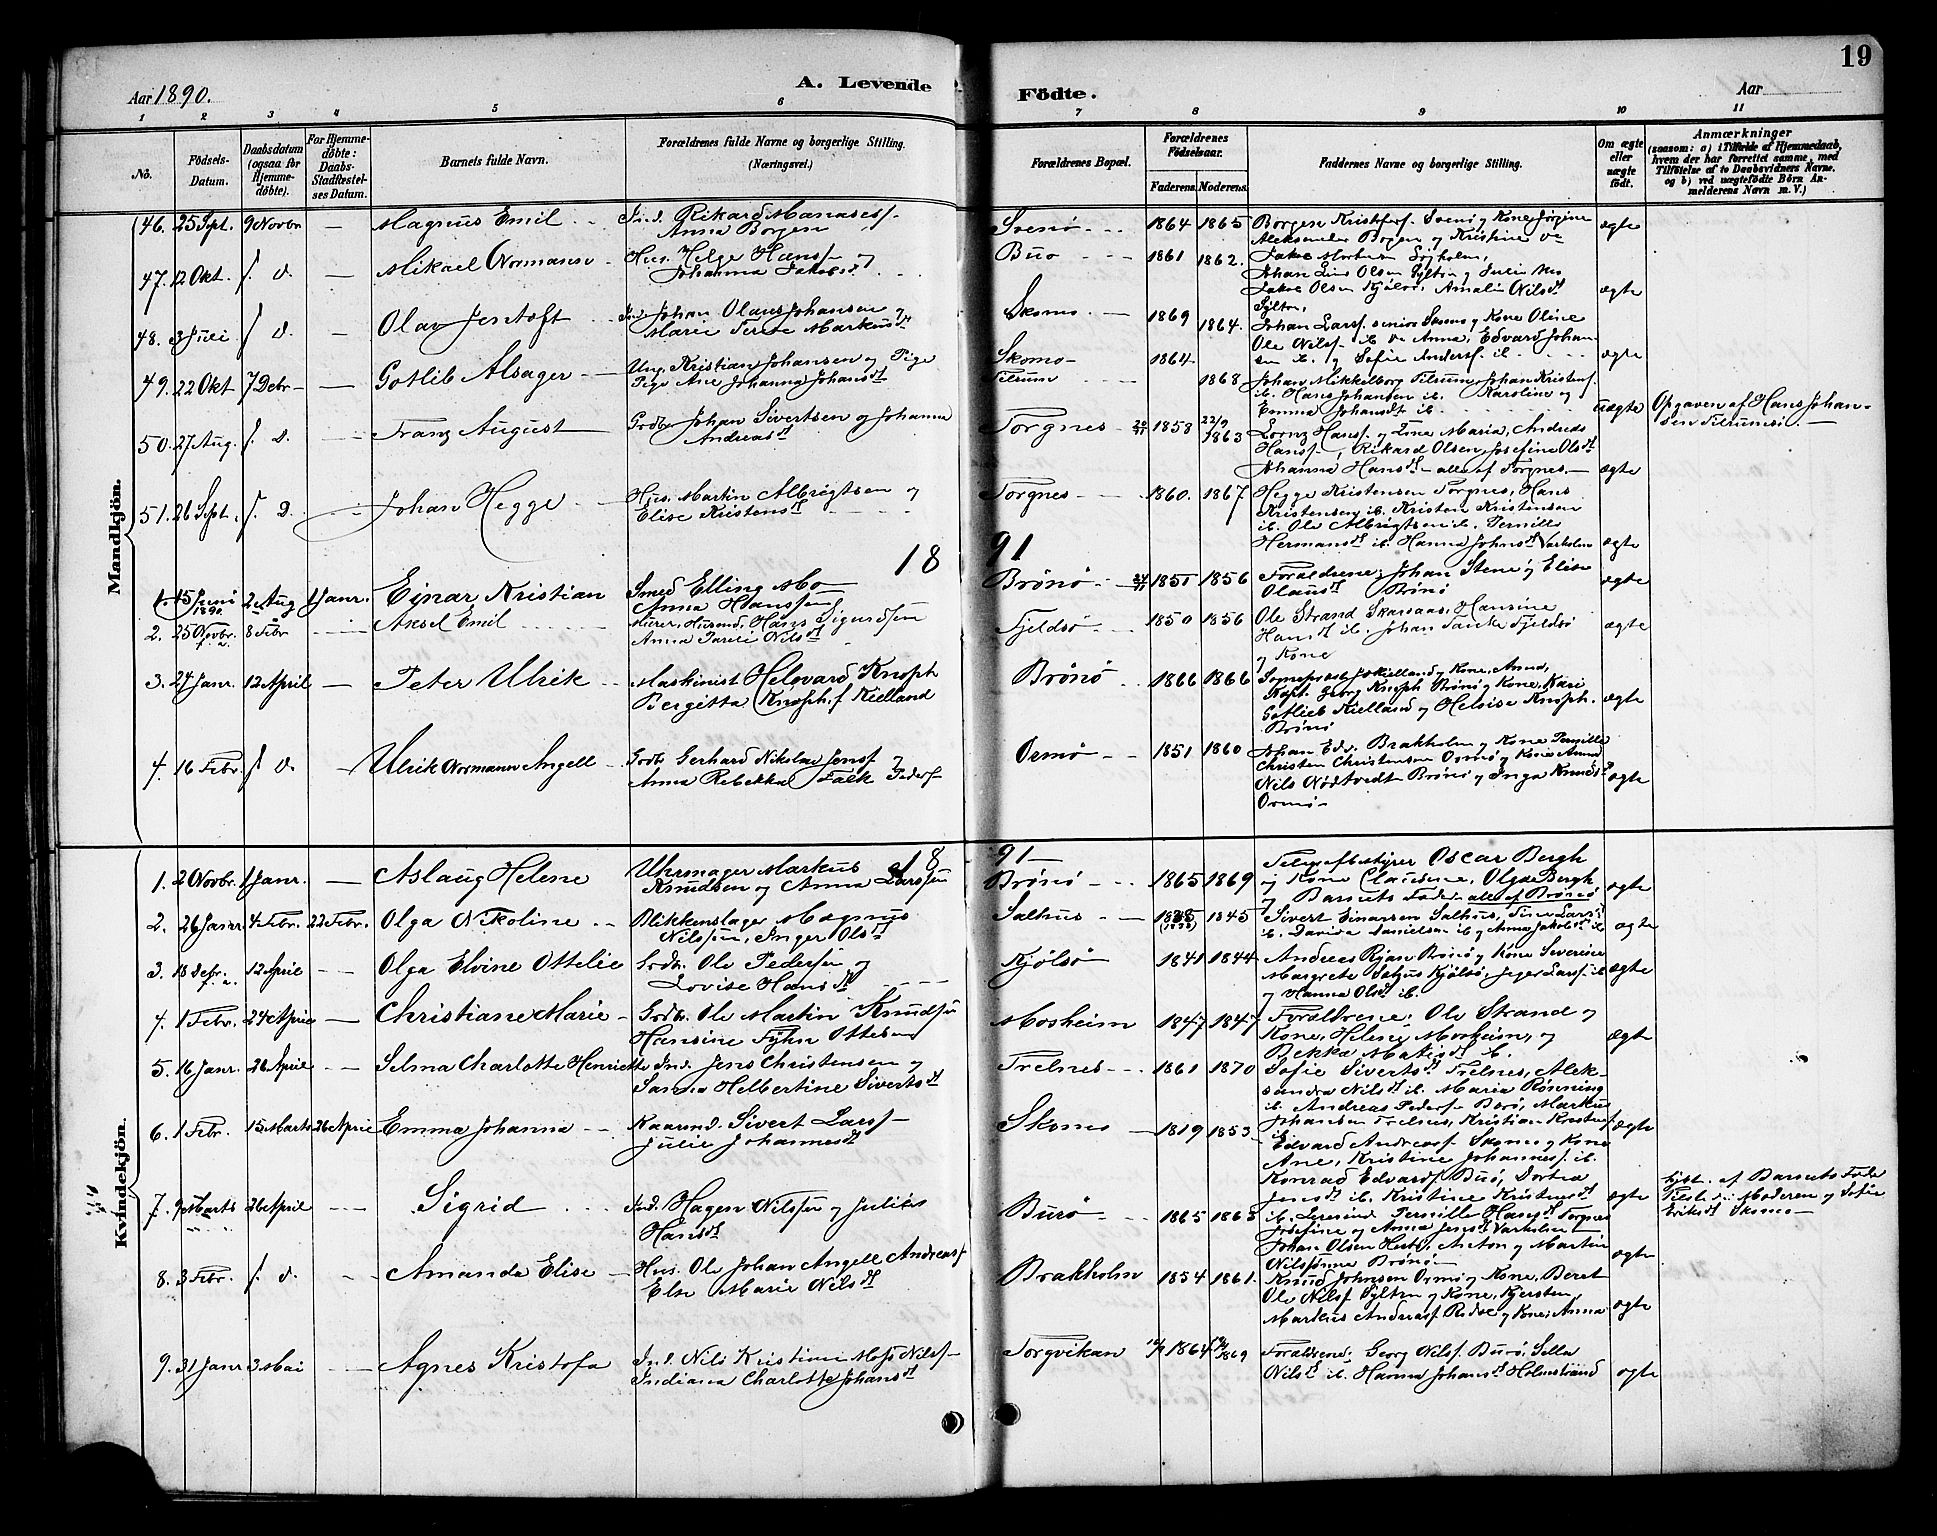 19
Aar 1890.
A. Levende Födte.
Aar
1 2 3 4 5 6 7 8 9 10 11
No.
Födsels-Datum.
Daabsdatum (ogsaa for Hjemme-döbte).
For Hjemme-döbte: Daabs-Stadfæstel-ses Datum.
Barnets fulde Navn.
Forældrenes fulde Navne og borgerlige Stilling. (Næringsvei.)
Forældrenes Bopæl.
Forældrenes Födselsaar.
Faderens. Moderens.
Faddernes Navne og borgerlige Stilling.
Om ægte eller uægte födt.
Anmærkninger
(saasom: a) i Tilfælde af Hjemmedaab, hvem der har forrettet samme, med Tilföielse af to Daabsvidners Navne, og b) ved uægtefödte Börn An-melderens Navn m. V.)
Mandkjön.
46. 25 Sept. 9 Novbr — Magnus Emil Ind. Rikard Manasesf. Anna Borgen Svenø 1864 1865 Borgen Kristofersf. Svenø og Kone Jørgine Aleksander Borgen og Kristine ægte
47. 12 Okt. s. d. — Mikael Normann Hus. Helge Hansf. og Johanna Jakobsdt Buø 1861 1862. Johan Olsen Sylten og Jakob Olsen Kjølsø, Amalie Nilsdt Sylten, ægte
48. 3 Juli s. d. — Olav Jentoft Ind. Johan Olaus Johansen og Marie Markusdt Skomo 1869 1864. Johan Larsf. senior Skomo og Kone Oline Ole Nilsf. ib. Anna, Edvard Johansen ib. og Sofie Andersf. ib. ægte
49. 22 Okt 7 Debr — Gotlib Alsager Ung. Kristian Johansen og Pige Pige Ane Johanna Johansdt Skomo Tilrum 1864. 1868 Johan Mikkelborg Tilrum, Johan Kristensf. ib. Hans Johansen ib. Karoline og Emma Johansdt ib. uægte Opgaven af Hans Johansen Tilrum
50. 27 Aug. s. d. — Franz August Gdbr. Johan Sivertsen og Johanna Andreasdt Torgnes 1858 22/9 1863 Hansf. og Line Maria, Andreas Hansf., Rikard Olsen, Josefine Olsdt Johanna Hansdt — alle af Torgnes. — ægte
51. 26 Sept. s. d. Johan Hegge Hus. Martin Albrigtsen og Elise Kristensdt Torgnes 1860. 1867 Hegge Kristensen Torgnes, Hans Kristensen ib. Kristen Kristensen ib. Ole Albrigtsen ib. Pernille Hermansdt ib. Hanna Johnsdt Varholm ægte
18 91
1. 15 Juni 1890 2 Aug 1 Janr. Einar Kristian Smed Elling Mo Anna Hanssen Brønø 1851 1856 Forældrene, Johan Stene og Elise Olausdt Brønø ægte
2. 25 Novbr. f. a. 8 Febr Aksel Emil Husmd. Hans Sigurdsen Anna Nilsdt Fjeldsø 1850 1856 Ole Strand Skarsaas, Hansine Hansdt ib. Johan Fjeldsø og Kone ægte
3. 27 Janr. 12 April — Peter Ulrik Maskinist Helevard Knoph Bergitta Knoph f. Kielland Brønø 1866 1866 Sogneprest Kielland og Kone, Anna, Kapt. Georg Knoph Brønø og Kone, Kari Gotlieb Kielland og Heloise Knoph. Brønø ægte
4. 16 Febr. s. d. — Ulrik Normann Angell Gdb. Gerhard Nikolai Jensf og Anna Rebekka Falk Pedersf Ormø 1851 1860 Johan Edv. Brakholm og Kone Pernille Christen Christensen Ormø og Kone Anna Nils Nødtvedt Brønø og Inga Knudsdt Ormø ægte
Kvindekjön.
18 91
1. 2 Novbr. 1 Janr. — Aslaug Helene Uhrmager Markus Knudsen og Anna Larssen Brønø 1865 1869 Telegrafbestyrer Oscar Bergh og Kone Claudine, Olga Bergh og Barnets Fader alle af Brønø ægte
2. 26 Janr. 4 Febr. 22 Febr. Olga Nikoline Blikkenslager Magnus Nilssen, Inger Olsdt Salhus 1845 Sivert Einarsen Salhus, Tine Larsdt ib. Davida Danielsen ib. og Anna Jakobsdt ib ægte
3. 18 Debr. f. a. 12 April — Olga Elvine Ottelie Gdbr. Ole Pedersen og Lovise Hansdt Kjølsø 1841 1844 Andreas Rjaan Brønø og Kone Severine Margrete Kjølsø, Larsf. ib og Hanna Olsdt ib. ægte
4. 1 Febr. 24 April — Christiane Marie Gdbr. Ole Martin Knudsen Hansine Fyhn Ottesen Mosheim 1847 1847 Forældrene, Ole Strand og Kone, Helene Mosheim, og Bekka Matisdt ib. ægte
5. 16 Janr. 26 April — Selma Charlotte Henriette Ind. Jens Christensen og Sanna Helbertine Sivertsdt Trelnes 1861 1870 Sofie Sivertsdt Trelnes, Aleksandra Nilsdt ib. Maria Rønning ib. Andreas Pedersf. Burø, Markus Johansen Trelnes, Kristian Kristensf ib. ægte
6. 1 Febr. 15 Marts 26 April Emma Johanna Kaarmd. Sivert Larsf. Julie Johannesdt Skomo 1819 1853 Edvard Andreasf. Skomo og Kone Ane, Kristine Johannesf. ib. Konrad Edvardsf Buø, Dortea Jensdt ib. Kristine Kristensdt ib. ægte Hjdt. af Barnets Fader Moderen og Sofie Eriksdt Skomo
7. 9 Marts 26 April — Sigrid Ind. Hagen Nilssen og Julies Hansdt Burø 1865 1863 Pernille Hansdt Torgnes Josefine og Anna Jensdt Varholm Johan Olsen, Anton og Martin Nilssønne Brønø ægte
8. 3 Febr. s. d. Amanda Elise Hus. Ole Johan Angell Andreasf Else Marie Nilsdt Brakholm 1854 1861. Knud Johnsen Ormø og Kone, Beret Ole Nilsf Sylten og Kone, Kjersten, Markus Andreasf og Kone, Anna ægte
9. 31 Janr 3 Mai Agnes Kristofa Ind. Nils Kristian Nilsf Indiana Charlotte Johansdt Torgvikan 1864 1869 Forældrene, Georg Nilsf. Burø, Nilsdt ib. Hanna Johansdt Holmstrand ægte